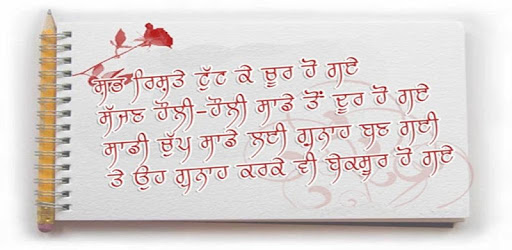 ਸਭ ਰਿਸ਼ਤੇ ਟੁੱਟ ਕੇ ਚੂਰ ਹੋ ਗਏ
ਸੱਜਣ ਹੌਲੀ-ਹੌਲੀ ਸਾਡੇ ਤੋਂ ਦੂਰ ਹੋ ਗਏ
ਸਾਡੀ ਚੁੱਪ ਸਾਡੇ ਲਈ ਗੁਨਾਹ ਬਣ ਗਈ
ਤੇ ਉਹ ਗੁਨਾਹ ਕਰਕੇ ਵੀ ਬੇਕਸੂਰ ਹੋ ਗਏ